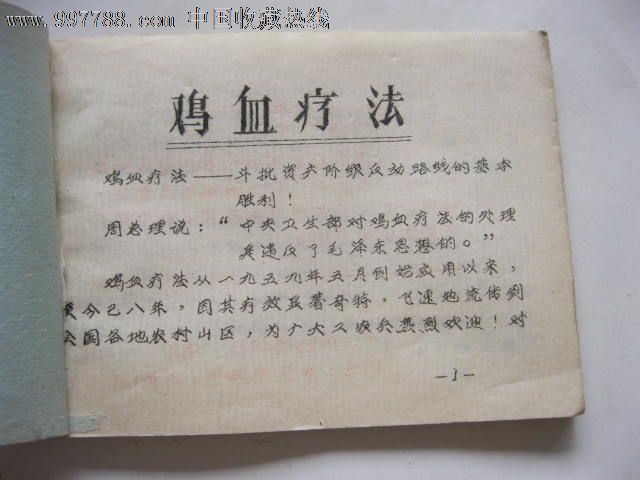 www.997788.com 中国收藏热线
鸡血疗法
鸡血疗法——斗批资产阶级反动路线的基本
胜利！
周总理说：“中央卫生部对鸡血疗法的处理
是违反了毛泽东思想的。”
鸡血疗法从一九五九年五月创始应用以来，
至今已八年，因其疗效显著奇特，飞速地流传到
全国各地农村山区，为广大工农兵热烈欢迎！对
—1—